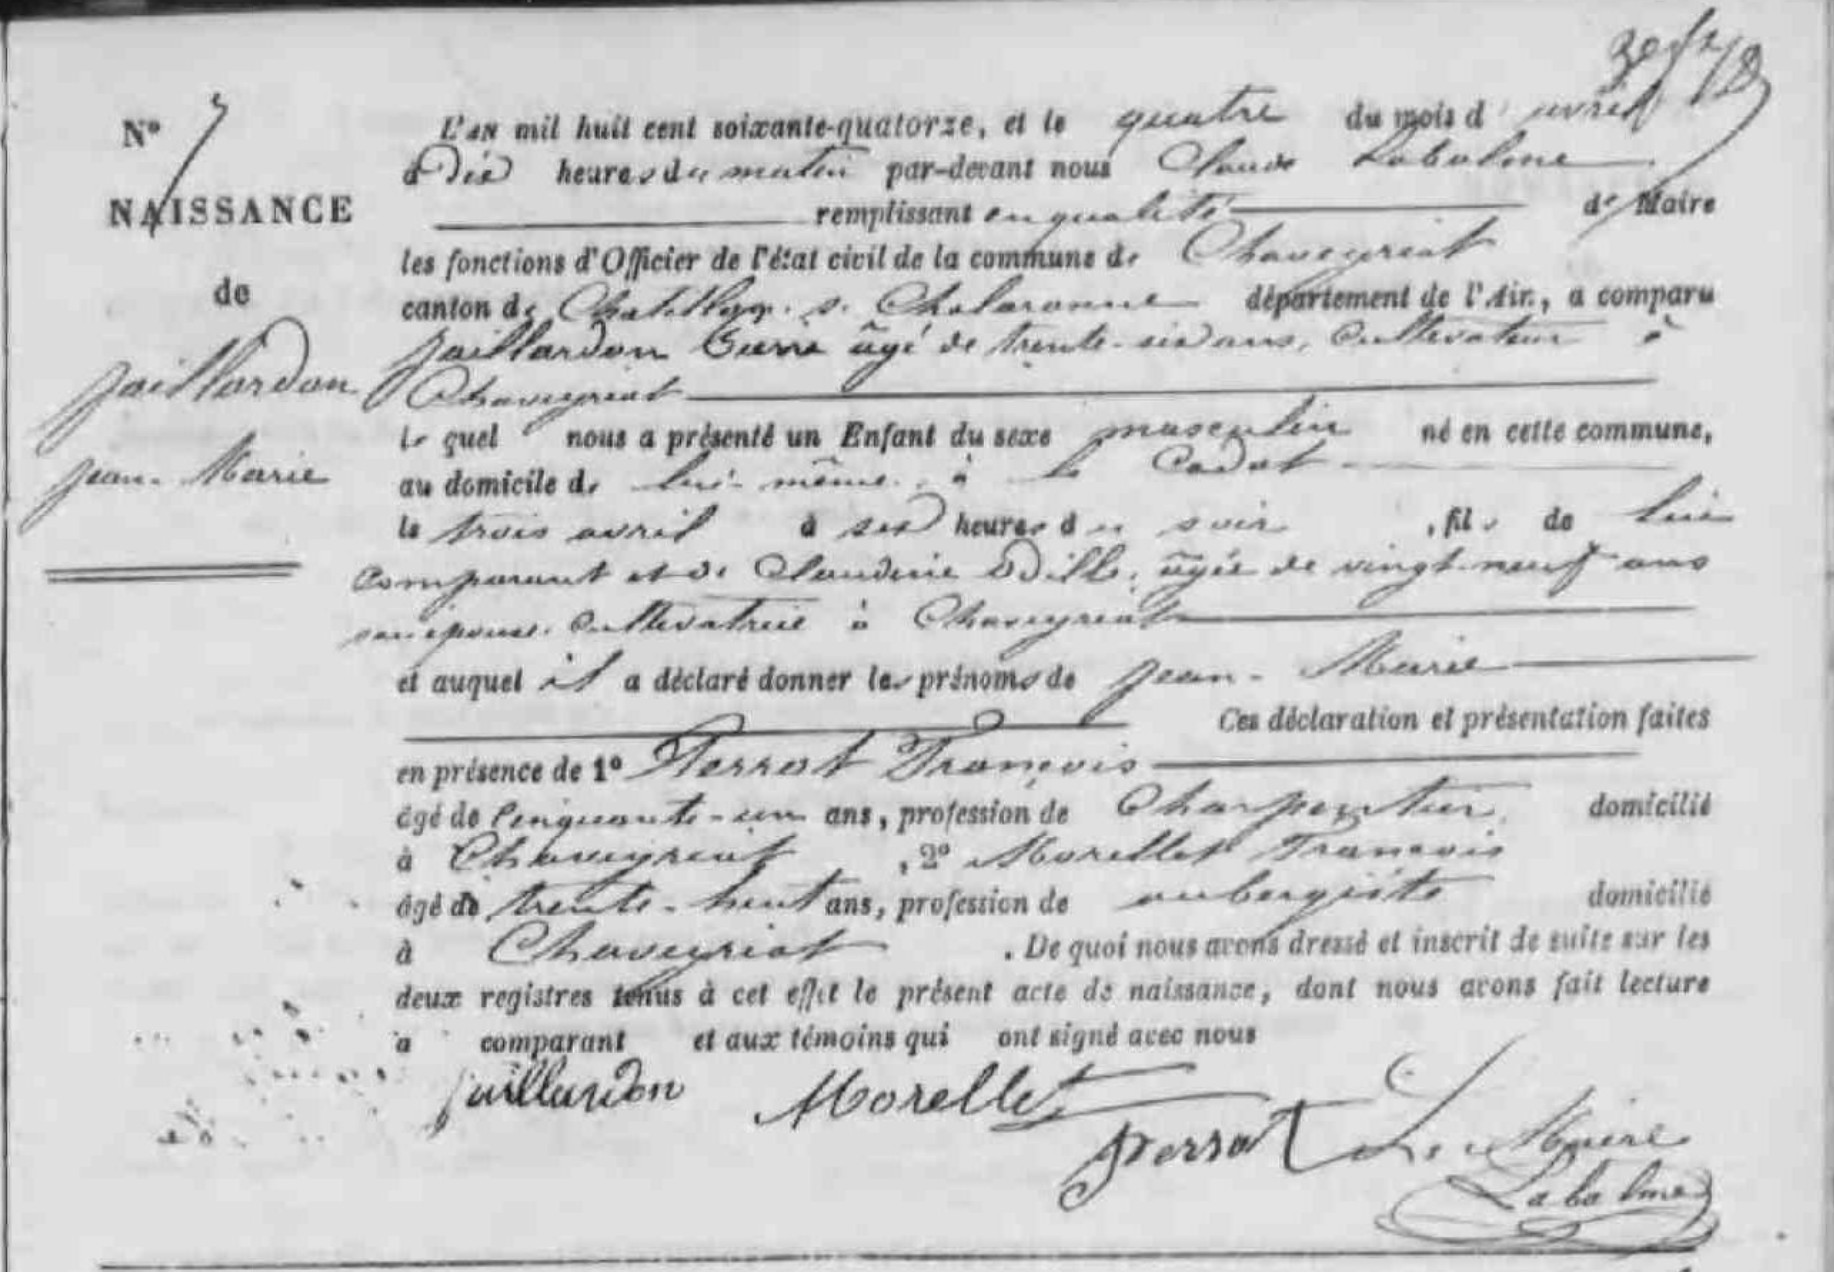 N° 7
NAISSANCE
de
Jaillardon
Jean-Marie
L'an mil huit cent soixante-quatorze, et le quatre du mois d'avril
à dix heures du matin par-devant nous Claude Labalme
remplissant en qualité de Maire
les fonctions d'Officier de l'état civil de la commune de Chaveyriat
canton de Chatillon s. Chalaronne département de l'Ain, a comparu
Jaillardon âgé de trente-six ans, cultivateur à
Chaveyriat
le quel nous a présenté un Enfant du sexe masculin né en cette commune,
au domicile de lui-même, à
le trois avril à six heures du soir, fils de lui
comparant et de Claudine âgée de vingt-neuf ans
son épouse, cultivatrice à Chaveyriat
et auquel il a déclaré donner les prénoms de Jean-Marie
Ces déclaration et présentation faites
en présence de 1° Perrat François
âgé de cinquante-un ans, profession de Charpentier, domicilié
à Chaveyriat, 2° Morellet François
âgé de trente-huit ans, profession de aubergiste domicilié
à Chaveyriat. De quoi nous avons dressé et inscrit de suite sur les
deux registres tenus à cet effet le présent acte de naissance, dont nous avons fait lecture
a comparant et aux témoins qui ont signé avec nous
Jaillardon Morellet
Perrat Le Maire
Labalme